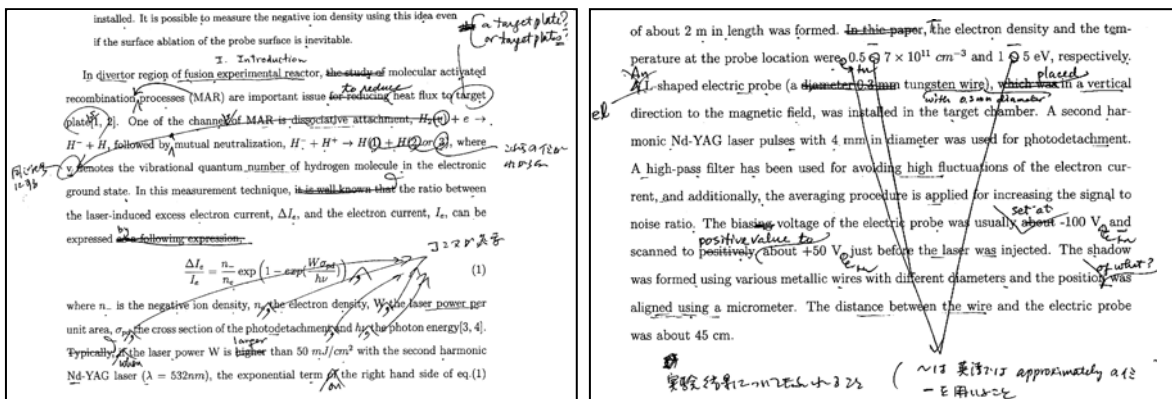 installed. It is possible to measure the negative ion density using this idea even
if the surface ablation of the probe surface is inevitable.
a target plate?
or target plates?
I. Introduction
In divertor region of fusion experimental reactor, the study of molecular activated
recombination processes (MAR) are important issue for reducing heat flux to target
to reduce
plate[1, 2]. One of the channel of MAR is dissociative attachment, H₂(v) + e →
H⁻ + H, followed by mutual neutralization, H⁻ + H⁺ → H(1) + H(2 or 3), where
v denotes the vibrational quantum number of hydrogen molecule in the electronic
ground state. In this measurement technique, is well known that the ratio between
the laser-induced excess electron current, ΔIₑ, and the electron current, Iₑ, can be
expressed as a following expression,
by
ΔIₑ/Iₑ = n₋/nₑ exp(1 − exp(Wσ_pt/hν)) (1)
where n₋ is the negative ion density, nₑ the electron density, W, the laser power per
unit area, σ_pt, the cross section of the photodetachment and hν, the photon energy[3, 4].
Typically, if the laser power W is higher than 50 mJ/cm² with the second harmonic
when
larger
Nd-YAG laser (λ = 532nm), the exponential term of the right hand side of eq.(1)
on
of about 2 m in length was formed. In this paper, the electron density and the tem-
perature at the probe location were 0.5 ~ 7 × 10¹¹ cm⁻³ and 1 ~ 5 eV, respectively.
An
el
A L-shaped electric probe (a diameter 0.3 mm tungsten wire), which was in a vertical
placed
with 0.3mm diameter
direction to the magnetic field, was installed in the target chamber. A second har-
monic Nd-YAG laser pulses with 4 mm in diameter was used for photodetachment.
A high-pass filter has been used for avoiding high fluctuations of the electron cur-
rent, and additionally, the averaging procedure is applied for increasing the signal to
noise ratio. The biasing voltage of the electric probe was usually about -100 V and
set at
scanned to positively (about +50 V just before the laser was injected. The shadow
positive value to
of what?
was formed using various metallic wires with different diameters and the position was
aligned using a micrometer. The distance between the wire and the electric probe
was about 45 cm.
実験結果についてもふれること
〜は英語では approximately の
ーを用いること